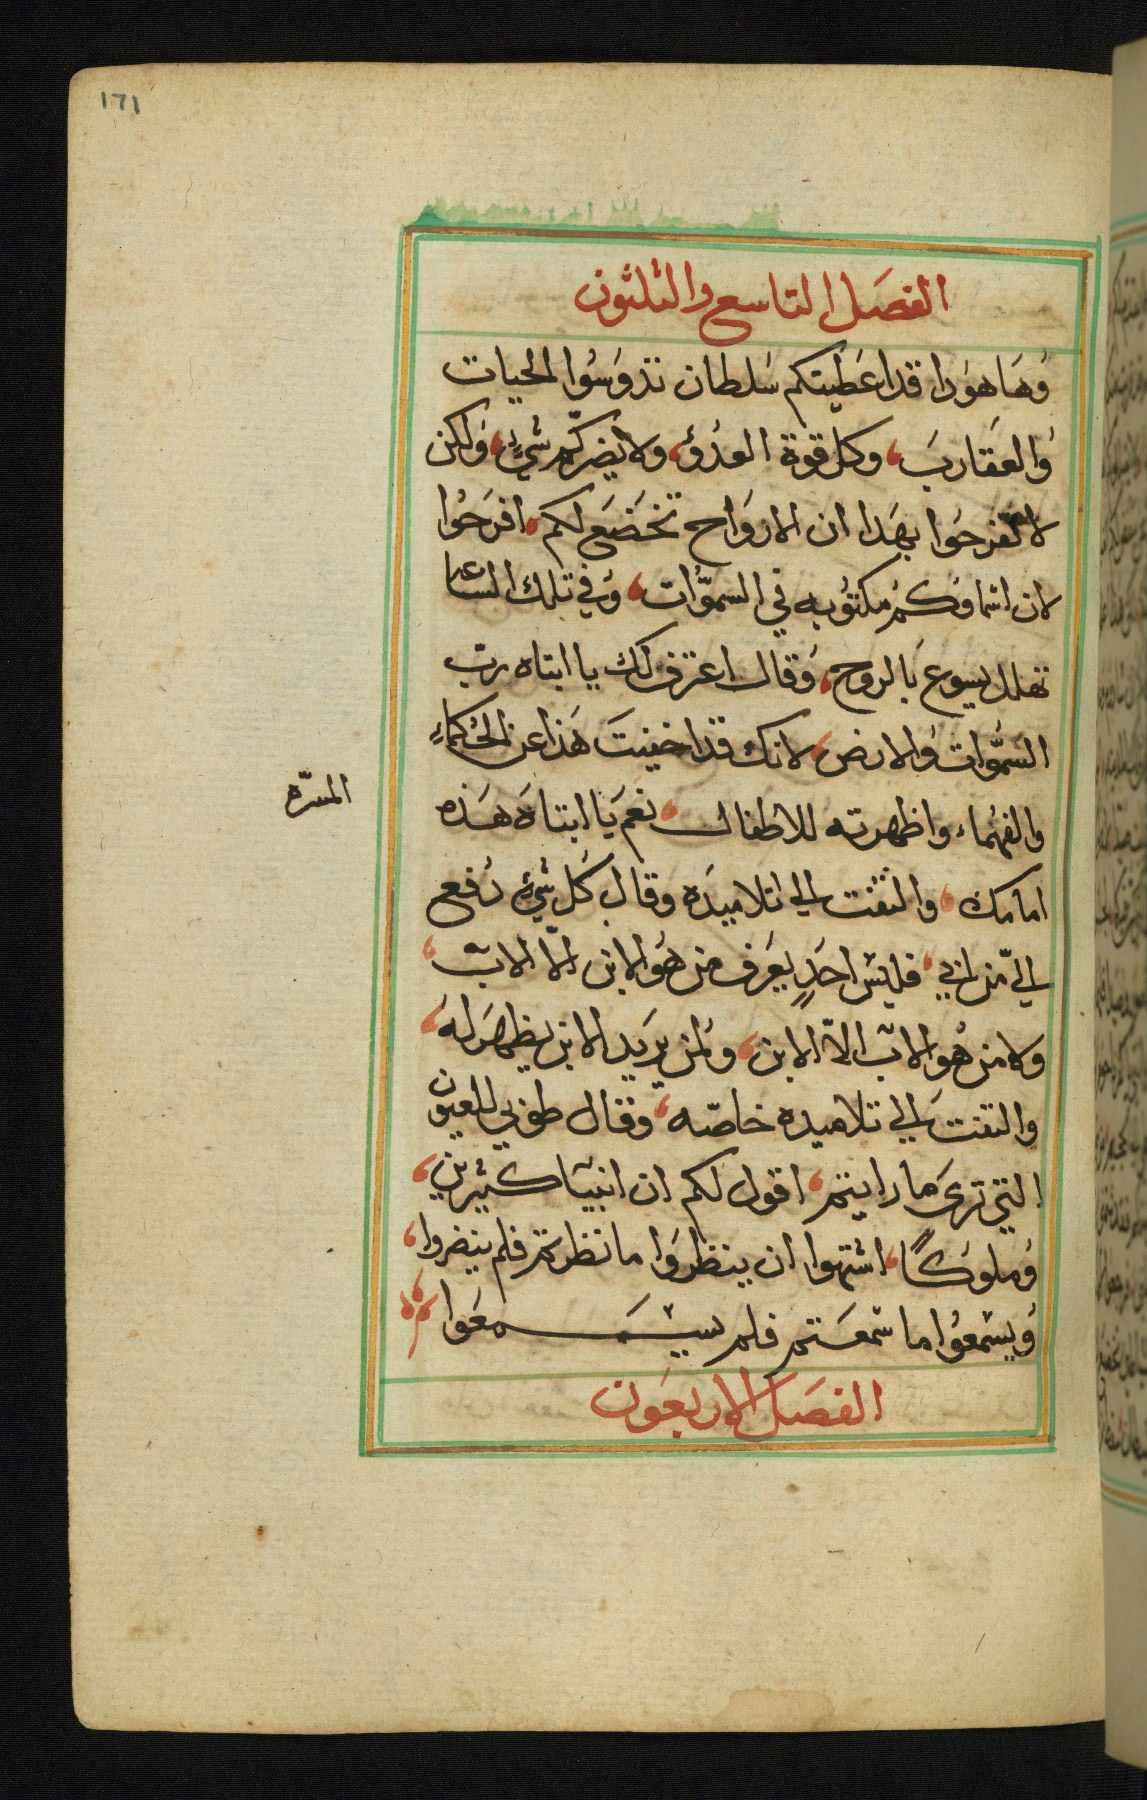 ١٦١
الفصل التاسع والثلثون
وها هودا قد اعطيتكم سلطان تدوسوا الحيات
والعقارب، وكل قوة العدو، ولا يضركم شيء، ولكن
لا تفرحوا بهدا ان الارواح تخضع لكم، افرحوا
لان اسماوكم مكتوبه في السموات، وفي تلك الساعه
تهلل يسوع بالروح، وقال اعترف لك يا ابتاه رب
السموات والارض، لانك قد اخفيت هذا عن الحكماء
والفهماء، واظهرته للاطفال، نعم يا ابتاه هذه
المسرّه
امامك، والتفت الي تلاميده وقال كل شيء دفع
الي من ابي، فليس احد يعرف من هو الابن الا الاب،
ولا من هو الاب الا الابن، ولمن يريد الابن يظهر له،
والتفت الي تلاميده خاصه، وقال طوبي للعيون
التي تري ما رايتم، اقول لكم ان انبيا كثيرين،
وملوكاً، اشتهوا ان ينظروا ما نظرتم فلم ينضروا،
ويسمعوا ما سمعتم فلم يسمعوا
الفصل الاربعون